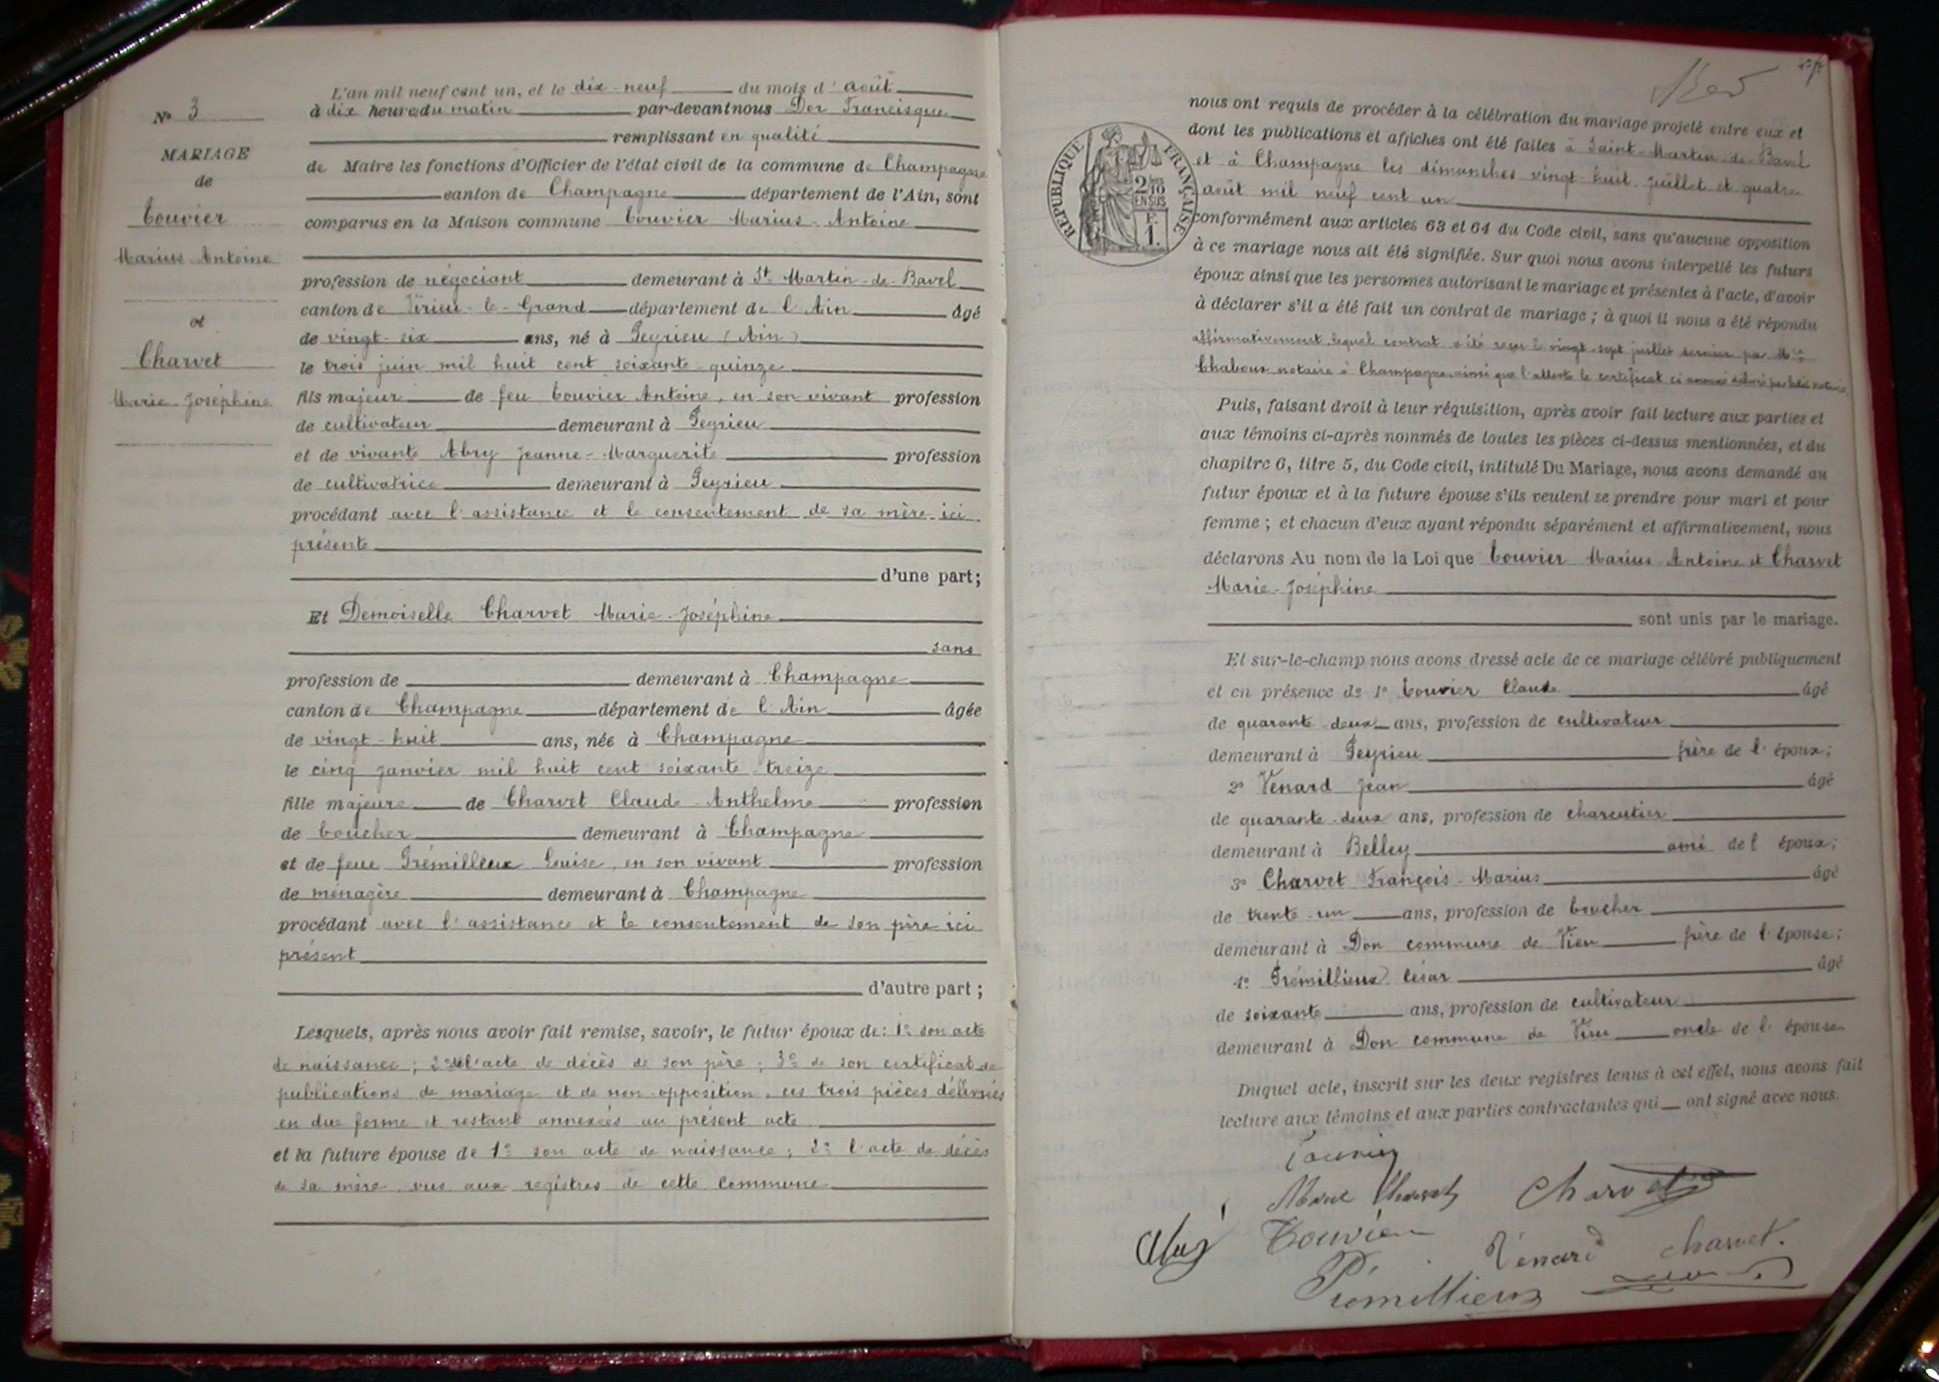 N° 3
MARIAGE
de
Touvier
Marius Antoine
et
Charvet
Marie Joséphine
L'an mil neuf cent un, et le dix-neuf du mois d'août
à dix heures du matin par-devant nous Dor Francisque
remplissant en qualité
de Maire les fonctions d'Officier de l'état civil de la commune de Champagne
canton de Champagne département de l'Ain, sont
comparus en la Maison commune Touvier Marius-Antoine
profession de négociant demeurant à St Martin-de-Bavel
canton de Virieu-le-Grand département de l'Ain âgé
de vingt-six ans, né à Peyrieu (Ain)
le trois juin mil huit cent soixante-quinze
fils majeur de feu Touvier Antoine, en son vivant profession
de cultivateur demeurant à Peyrieu
et de vivante Abry Jeanne-Marguerite profession
de cultivatrice demeurant à Peyrieu
procédant avec l'assistance et le consentement de sa mère ici
présente
d'une part;
Et Demoiselle Charvet Marie-Joséphine
sans
profession de demeurant à Champagne
canton de Champagne département de l'Ain âgée
de vingt-huit ans, née à Champagne
le cinq janvier mil huit cent soixante-treize
fille majeure de Charvet Claude-Anthelme profession
de boucher demeurant à Champagne
et de feue Prémillieux Louise, en son vivant profession
de ménagère demeurant à Champagne
procédant avec l'assistance et le consentement de son père ici
présent
d'autre part;
Lesquels, après nous avoir fait remise, savoir, le futur époux de: 1° son acte
de naissance; 2° de l'acte de décès de son père; 3° de son certificat de
publications de mariage et de non-opposition, ces trois pièces délivrées
en due forme et restant annexées au présent acte
et la future épouse de 1° son acte de naissance; 2° l'acte de décès
de sa mère vus aux registres de cette commune
27
RÉPUBLIQUE FRANÇAISE
2/10
EN SUS
F.
1.
nous ont requis de procéder à la célébration du mariage projeté entre eux et
dont les publications et affiches ont été faites à Saint-Martin-de-Bavel
et à Champagne les dimanches vingt-huit juillet et quatre
août mil neuf cent un
conformément aux articles 63 et 64 du Code civil, sans qu'aucune opposition
à ce mariage nous ait été signifiée. Sur quoi nous avons interpellé les futurs
époux ainsi que les personnes autorisant le mariage et présentes à l'acte, d'avoir
à déclarer s'il a été fait un contrat de mariage; à quoi il nous a été répondu
affirmativement lequel contrat a été reçu le vingt-sept juillet dernier par Me
Chaboux notaire à Champagne ainsi que l'atteste le certificat ci annexé délivré par ledit notaire
Puis, faisant droit à leur réquisition, après avoir fait lecture aux parties et
aux témoins ci-après nommés de toutes les pièces ci-dessus mentionnées, et du
chapitre 6, titre 5, du Code civil, intitulé Du Mariage, nous avons demandé au
futur époux et à la future épouse s'ils veulent se prendre pour mari et pour
femme; et chacun d'eux ayant répondu séparément et affirmativement, nous
déclarons Au nom de la Loi que Touvier Marius-Antoine et Charvet
Marie-Joséphine
sont unis par le mariage.
Et sur-le-champ nous avons dressé acte de ce mariage célébré publiquement
et en présence de 1° Touvier Claude âgé
de quarante-deux ans, profession de cultivateur
demeurant à Peyrieu frère de l'époux;
2° Venard Jean âgé
de quarante-deux ans, profession de charcutier
demeurant à Belley ami de l'époux;
3° Charvet François-Marius âgé
de trente-un ans, profession de boucher
demeurant à Don commune de Vieu frère de l'épouse;
4° Prémillieux César âgé
de soixante ans, profession de cultivateur
demeurant à Don commune de Vieu oncle de l'épouse
Duquel acte, inscrit sur les deux registres tenus à cet effet, nous avons fait
lecture aux témoins et aux parties contractantes qui ont signé avec nous.
Touvier
Marie Charvet Charvet
Touvier Vénard Charvet.
Prémillieux